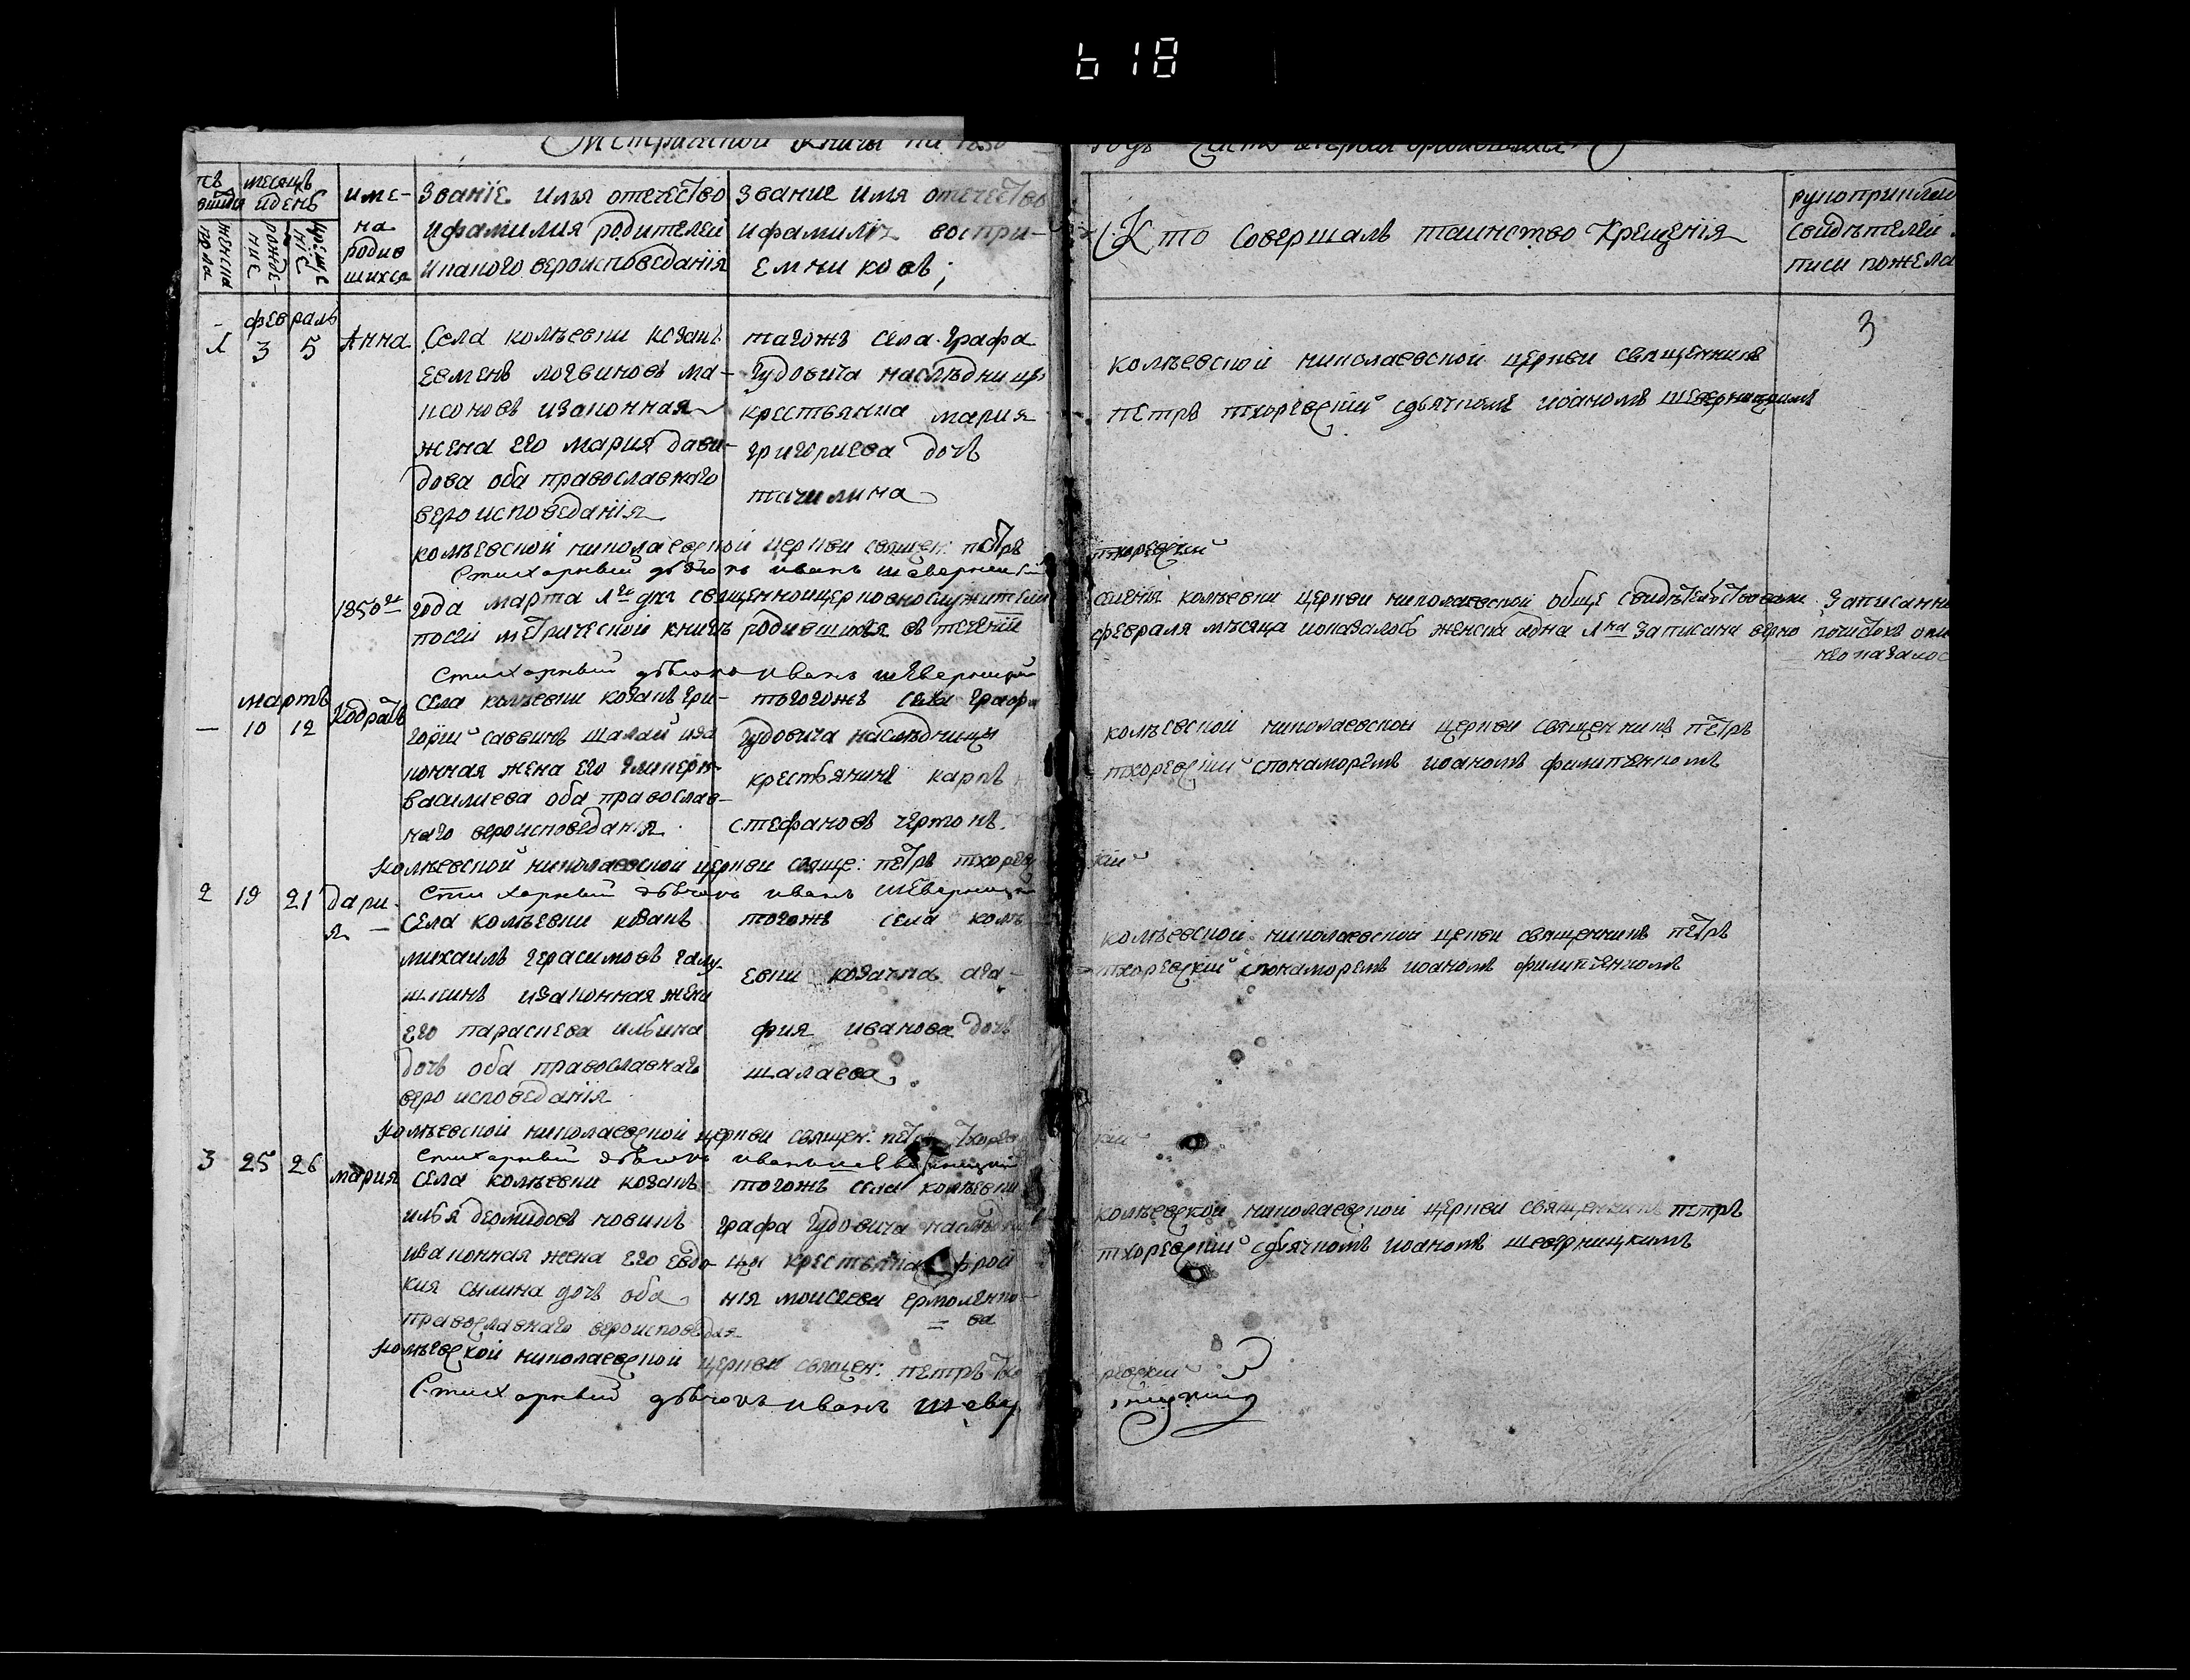 618
Метрической Книги на 1850
годъ Часть первая о родившихся
месяцъ
идень
женска
пола
рожде-
ние
креще
ніе
име-
на
родив
шихся
Званіе имя отечество
ифамилия родителей
икакого вероисповеданія
Звание имя отечество
ифамилія воспри-
емников;
Кто Совершалъ таинство Крещенія
рукоприклад
свидѣтелей
писи пожела
3
февраль
1 3 5 Анна
Села колѣевки козакъ
Евменъ логвиновъ ма-
ксоновъ изаконная
жена его мария дави-
дова оба православнаго
вероисповеданія
тагожъ села графа
Гудовича наслѣдници
крестьянка мария
григориева дочь
тачилина
колѣевской николаевской церкви священникъ
петръ тхоревскій сдьячкомъ иоаномъ шеверницкимъ
колѣевской николаевской церкви священ: петръ
тхоревскій
Стихарный дьячокъ иванъ шеверницкій
1850го года марта 1го дня священноицерковнослужители
селенія колѣевки церкви николаевской обще свидѣтельствовали
посей метрической книгѣ родившихся въ теченіи
февраля мѣсяца иоказалось женска одна 1на записана верно
Записанн
неоказалос
Стихарный дьячокъ иванъ шеверницкій
мартъ
— 10 12 Кодратъ
Села колѣевки козакъ гри-
горій саввинъ шалай иза
конная жена его гликерія
василиева оба православ-
наго вероисповеданія
тогогожъ села графа
Гудовича наслѣдницы
крестьянинъ карпъ
стефановъ чертокъ.
колѣевской николаевской церкви священникъ петръ
тхоревскій спонаморемъ иоаномъ филипенкомъ
колѣевской николаевской церкви свяще: петръ тхоревс
кій
Стихарный дьячокъ иванъ шеверницкій
2 19 21 дари-
я
Села колѣевки козакъ
михаилъ герасимовъ галу-
шкинъ изаконная жена
его параскева ильина
дочь оба православнаго
вероисповеданія
тогожъ села колѣ
евки козачка ага-
фия иванова дочь
шалаева
колѣевской николаевской церкви священникъ петръ
тхоревскій спонаморемъ иоаномъ филипенкомъ
колѣевской николаевской церкви священ: петръ тхорев
скій
Стихарный дьячокъ иванъ шеверницкій
3 25 26 мария
Села колѣевки козакъ
илья деомидовъ новикъ
изаконная жена его евдо-
кия сылина дочь оба
православнаго вероисповедая
тогожъ села колѣевки
графа Гудовича наслѣдни
цы крестьянка фрой
нія моисеева ермоленко-
ва
колѣевской николаевской церкви священникъ петръ
тхоревскій сдьячкомъ иоаномъ шеверницкимъ
колѣевской николаевской церкви священ: петръ тхо
ревскій
Стихарный дьячокъ иванъ шевер
ницкий